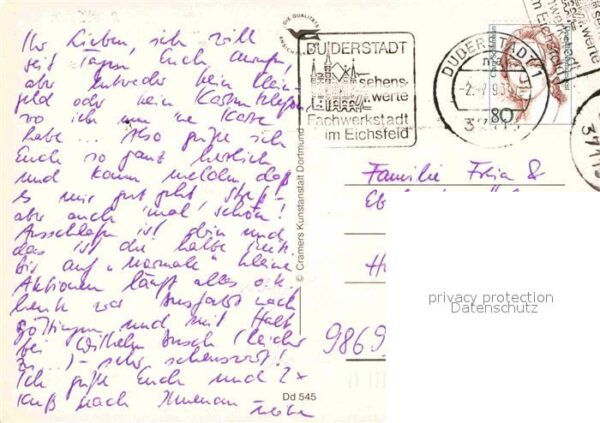 Ihr Lieben, ich will
seit Tagen Euch anrufen,
aber entweder kein Klein-
geld oder kein Kartentelefon
wo ich 'ne Karte
habe... Also grüße ich
Euch so ganz herzlich
und kann melden, daß
es mir gut geht
aber auch 'mal schön!
Ausschlafen ist drin und
das ist die halbe Miete.
Bis auf "normale" kleine
Aktionen läuft alles o.k.
heute war Ausfahrt nach
Göttingen und mit Halt
bei Wilhelm Busch (leider
zu...) - sehr sehenswert!
Ich grüße Euch und 2x
Kuß nach Ilmenau
DIE QUALITÄT
© Cramers Kunstanstalt Dortmund
Dd 545
DUDERSTADT
sehens-
werte
Fachwerkstadt
im Eichsfeld
DUDERSTADT 1
80
Familie Freia &
9869
privacy protection
Datenschutz